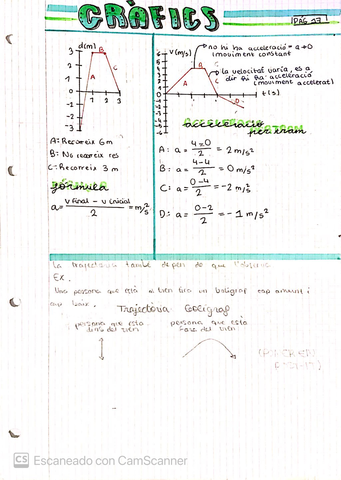 GRÀFICS
PÀG 27
d(m)
3
2
1
0
-1
-2
-3
1 2 3
A
B
C
A: Recorreix 6m
B: No recorreix res
C: Recorreix 3 m
fórmula
a = v final - v inicial / 2 = m/s²
v(m/s)
t(s)
A
B
C
D
no hi ha acceleració = a→0
(moviment constant
la velocitat varia, es a
dir hi ha acceleració
(moviment accelerat)
acceleració
per tram
A: a = 4-0 / 2 = 2 m/s²
B: a = 4-4 / 2 = 0 m/s²
C: a = 0-4 / 2 = -2 m/s²
D: a = 0-2 / 2 = -1 m/s²
La trajectòria també depen de que l'observa
EX.
Una persona que està al tren tira un bolígraf cap amunt i
cap baix.
Trajectòria Bolígraf
persona que està
dins del tren
persona que està
fora del tren
CS Escaneado con CamScanner